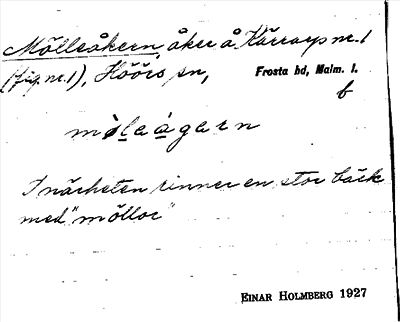 Mölleåkern, åker å Kärrarps nr. 1
(fig. nr. 1), Höörs sn, Frosta hd, Malm. l.
b
möleågern
I närheten rinner en stor bäck
med "möllor"
EINAR HOLMBERG 1927